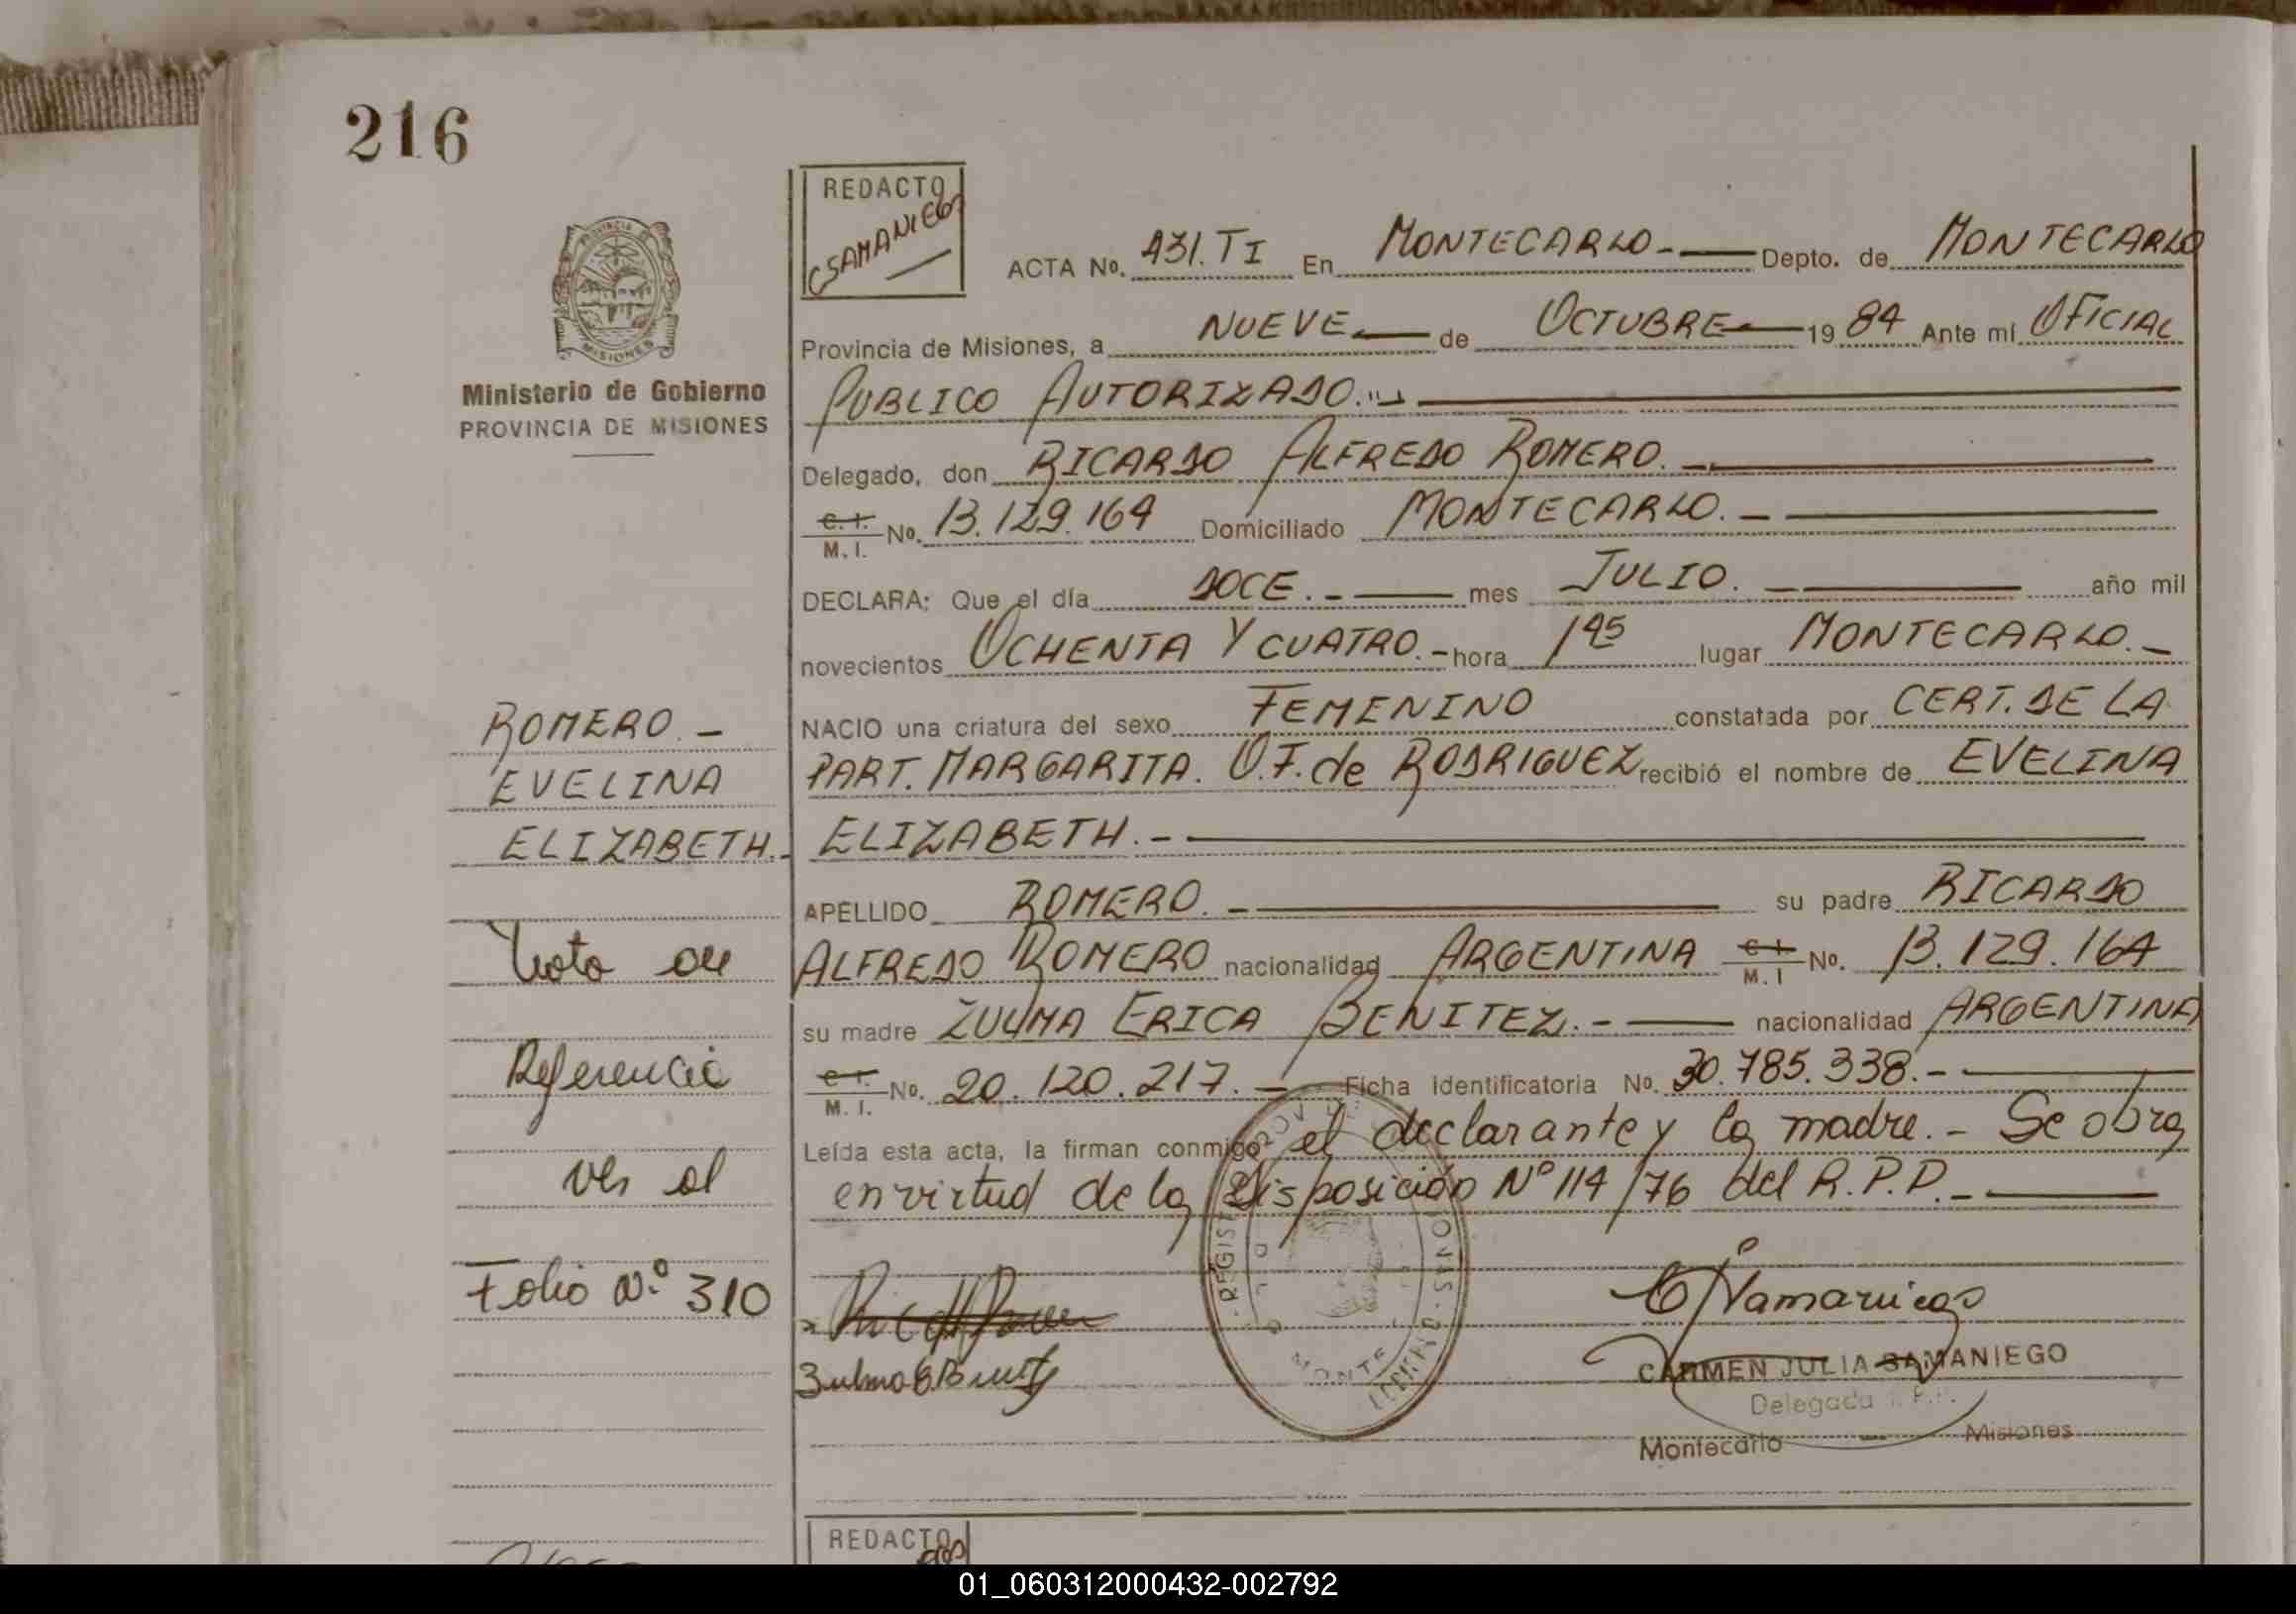 216
REDACTO
CSAMANIEGO
PROVINCIA DE
MISIONES
Ministerio de Gobierno
PROVINCIA DE MISIONES
ACTA No. 431.TI En MONTECARLO.- Depto. de MONTECARLO
Provincia de Misiones, a NUEVE de OCTUBRE 19 84 Ante mí OFICIAL
PUBLICO AUTORIZADO.
Delegado, don RICARDO ALFREDO ROMERO.-
C. I. M. I. No. 13.129.164 Domiciliado MONTECARLO.-
DECLARA: Que el día DOCE.- mes JULIO.- año mil
novecientos OCHENTA Y CUATRO.- hora 1 45 lugar MONTECARLO.-
NACIO una criatura del sexo FEMENINO constatada por CERT. DE LA
PART. MARGARITA. O.F. de RODRIGUEZ recibió el nombre de EVELINA
ELIZABETH.-
APELLIDO ROMERO.- su padre RICARDO
ALFREDO ROMERO nacionalidad ARGENTINA C. I. M. I No. 13.129.164
su madre ZULMA ERICA BENITEZ.- nacionalidad ARGENTINA
C. I. M. I. No. 20.120.217.- Ficha identificatoria No. 30.785.338.-
Leída esta acta, la firman conmigo el declarante y la madre.- Se obra
en virtud de la Disposición Nº 114/76 del R.P.P.-
ROMERO.-
EVELINA
ELIZABETH.-
Nota de
Referencia
ver al
Folio Nº 310
Zulma E Benitez
CSamaniego
CARMEN JULIA SAMANIEGO
Delegada
Montecarlo Misiones
REDACTO
01_060312000432-002792